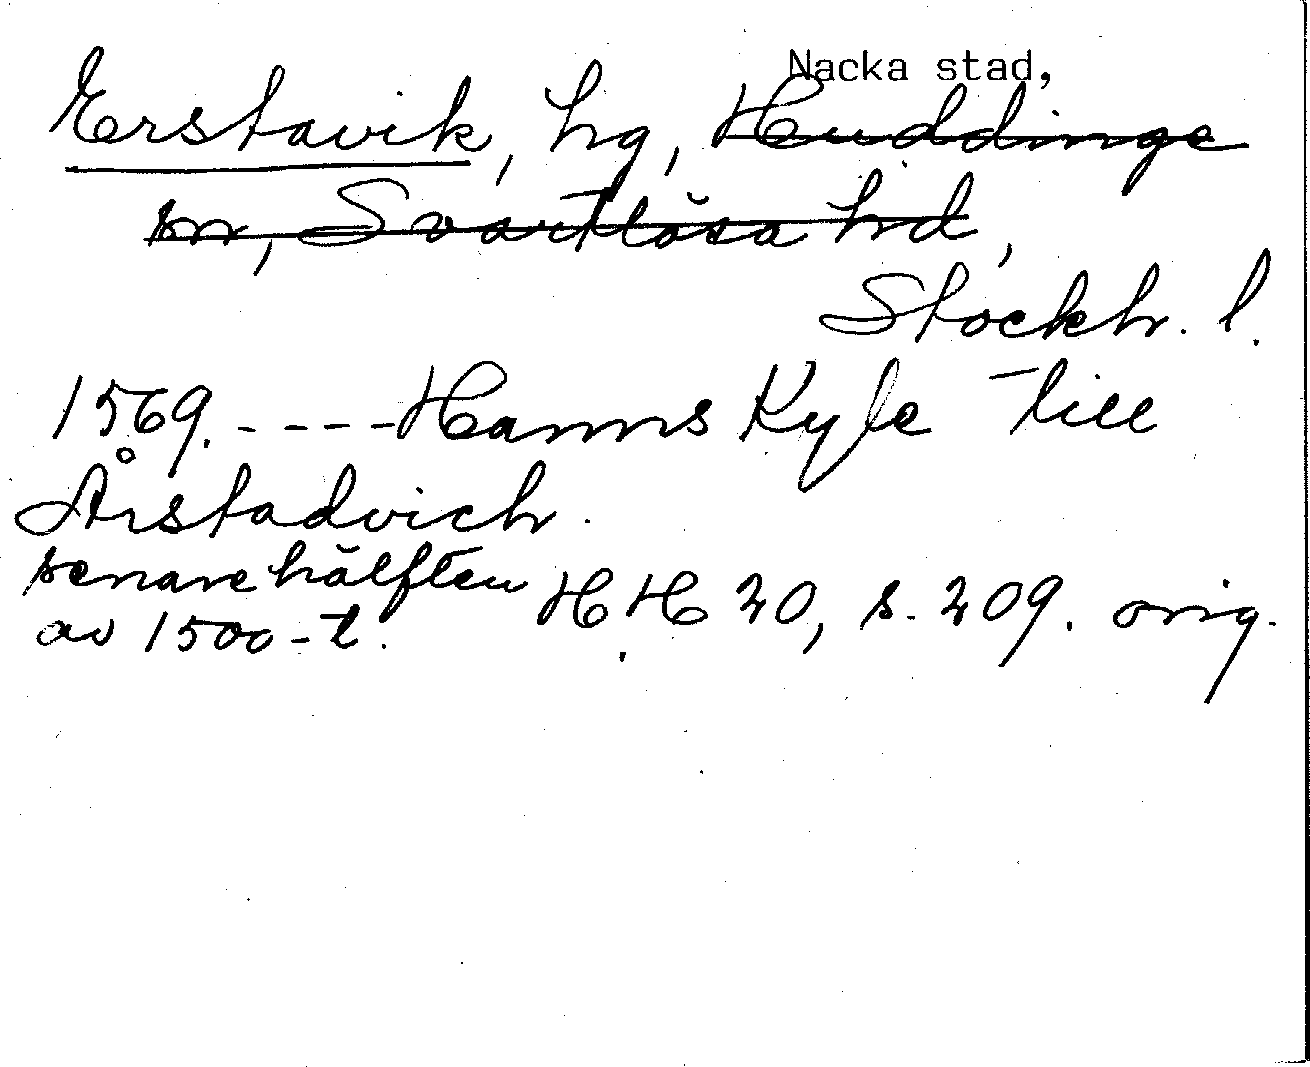 Nacka stad,
Erstavik, hg, Huddinge
sn, Svartlösa hd,
Stockh. l.
1569. - - - - Hanns Kyle till
Årstadvich.
senare hälften
av 1500-t. HH 20, s. 209. orig.